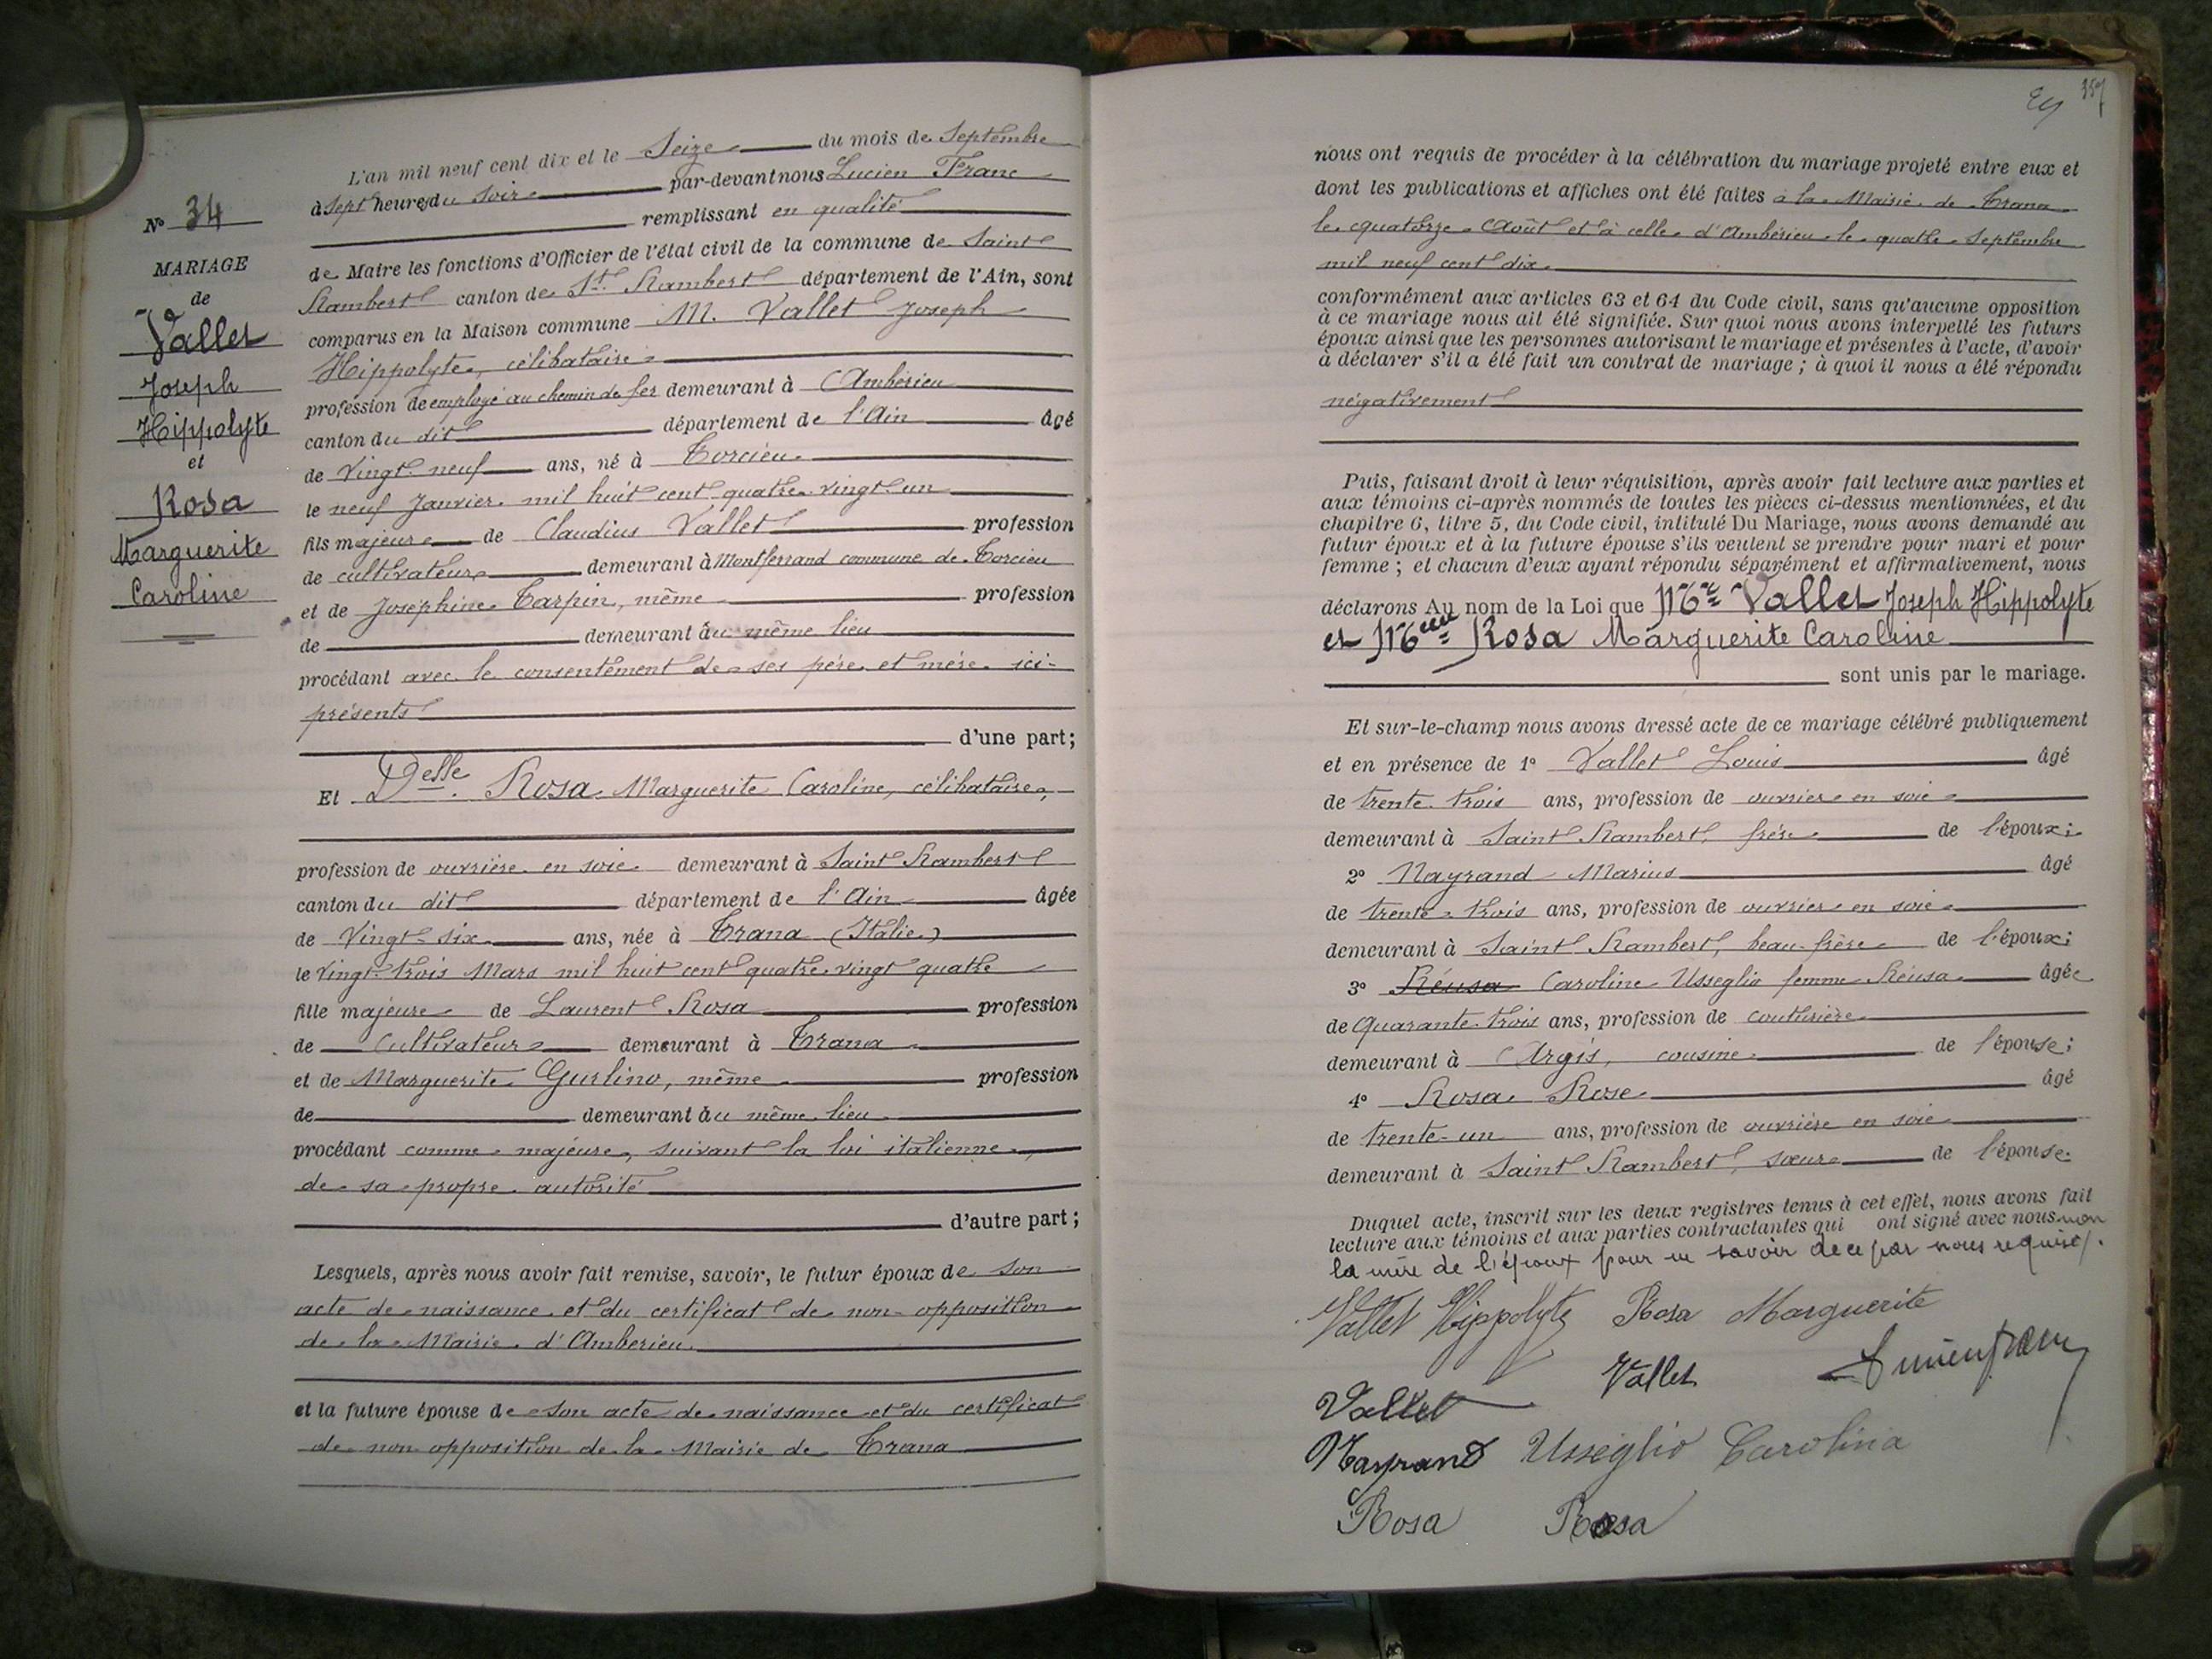 N° 34
MARIAGE
de
Vallet
Joseph
Hippolyte
et
Rosa
Marguerite
Caroline
L'an mil neuf cent dix et le Seize du mois de Septembre
à sept heures du soir par-devant nous Lucien Franc
remplissant en qualité
de Maire les fonctions d'Officier de l'état civil de la commune de Saint
Rambert canton de St. Rambert département de l'Ain, sont
comparus en la Maison commune M. Vallet Joseph
Hippolyte, célibataire
profession de employé au chemin de fer demeurant à Ambérieu
canton du dit département de l'Ain âgé
de Vingt neuf ans, né à Torcieu
le neuf Janvier mil huit cent quatre vingt un
fils majeur de Claudius Vallet profession
de cultivateur demeurant à Montferrand commune de Torcieu
et de Joséphine Tarpin, même profession
de demeurant au même lieu
procédant avec le consentement de ses père et mère ici-
présents
d'une part;
Et Delle. Rosa Marguerite Caroline, célibataire,
profession de ouvrière en soie demeurant à Saint Rambert
canton du dit département de l'Ain âgée
de Vingt-six ans, née à Trana (Italie)
le vingt-trois Mars mil huit cent quatre vingt quatre
fille majeure de Laurent Rosa profession
de Cultivateur demeurant à Trana
et de Marguerite Gurlino, même profession
de demeurant au même lieu
procédant comme majeure, suivant la loi italienne,
de sa propre autorité
d'autre part;
Lesquels, après nous avoir fait remise, savoir, le futur époux de son
acte de naissance et du certificat de non-opposition
de la Mairie d'Amberieu
et la future épouse de son acte de naissance et du certificat
de non opposition de la Mairie de Trana
357
nous ont requis de procéder à la célébration du mariage projeté entre eux et
dont les publications et affiches ont été faites à la Mairie de Trana
le quatorze Août et à celle d'Ambérieu le quatre Septembre
mil neuf cent dix
conformément aux articles 63 et 64 du Code civil, sans qu'aucune opposition
à ce mariage nous ait été signifiée. Sur quoi nous avons interpellé les futurs
époux ainsi que les personnes autorisant le mariage et présentes à l'acte, d'avoir
à déclarer s'il a été fait un contrat de mariage; à quoi il nous a été répondu
négativement
Puis, faisant droit à leur réquisition, après avoir fait lecture aux parties et
aux témoins ci-après nommés de toutes les pièces ci-dessus mentionnées, et du
chapitre 6, titre 5, du Code civil, intitulé Du Mariage, nous avons demandé au
futur époux et à la future épouse s'ils veulent se prendre pour mari et pour
femme; et chacun d'eux ayant répondu séparément et affirmativement, nous
déclarons Au nom de la Loi que Mr Vallet Joseph Hippolyte
et Melle Rosa Marguerite Caroline
sont unis par le mariage.
Et sur-le-champ nous avons dressé acte de ce mariage célébré publiquement
et en présence de 1° Vallet Louis âgé
de trente trois ans, profession de ouvrier en soie
demeurant à Saint Rambert, frère de l'époux;
2° Nayrand Marius âgé
de trente trois ans, profession de ouvrier en soie
demeurant à Saint Rambert, beau-frère de l'époux;
3° Réusa Caroline Usseglio femme Réusa âgée
de Quarante trois ans, profession de couturière
demeurant à Argis, cousine de l'épouse;
4° Rosa Rose âgé
de trente-un ans, profession de ouvrière en soie
demeurant à Saint Rambert, sœur de l'épouse.
Duquel acte, inscrit sur les deux registres tenus à cet effet, nous avons fait
lecture aux témoins et aux parties contractantes qui ont signé avec nous non
la mère de l'époux pour ne savoir de ce par nous requise.
Vallet Hippolyte Rosa Marguerite
Vallet Vallet Lucien Franc
Nayrand Usseglio Carolina
Rosa Rosa